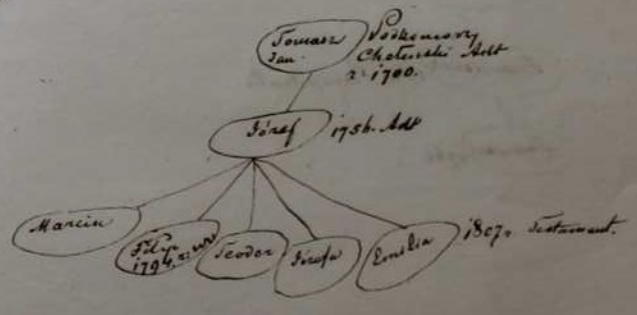 Tomasz
Jan.
Podkomorzy
Chełmski Akt
r. 1700.
Józef
1756. Akt
Marcin
Filip
1794. r.
Teodor
Józefa
Emilia
1807 r. Testament.